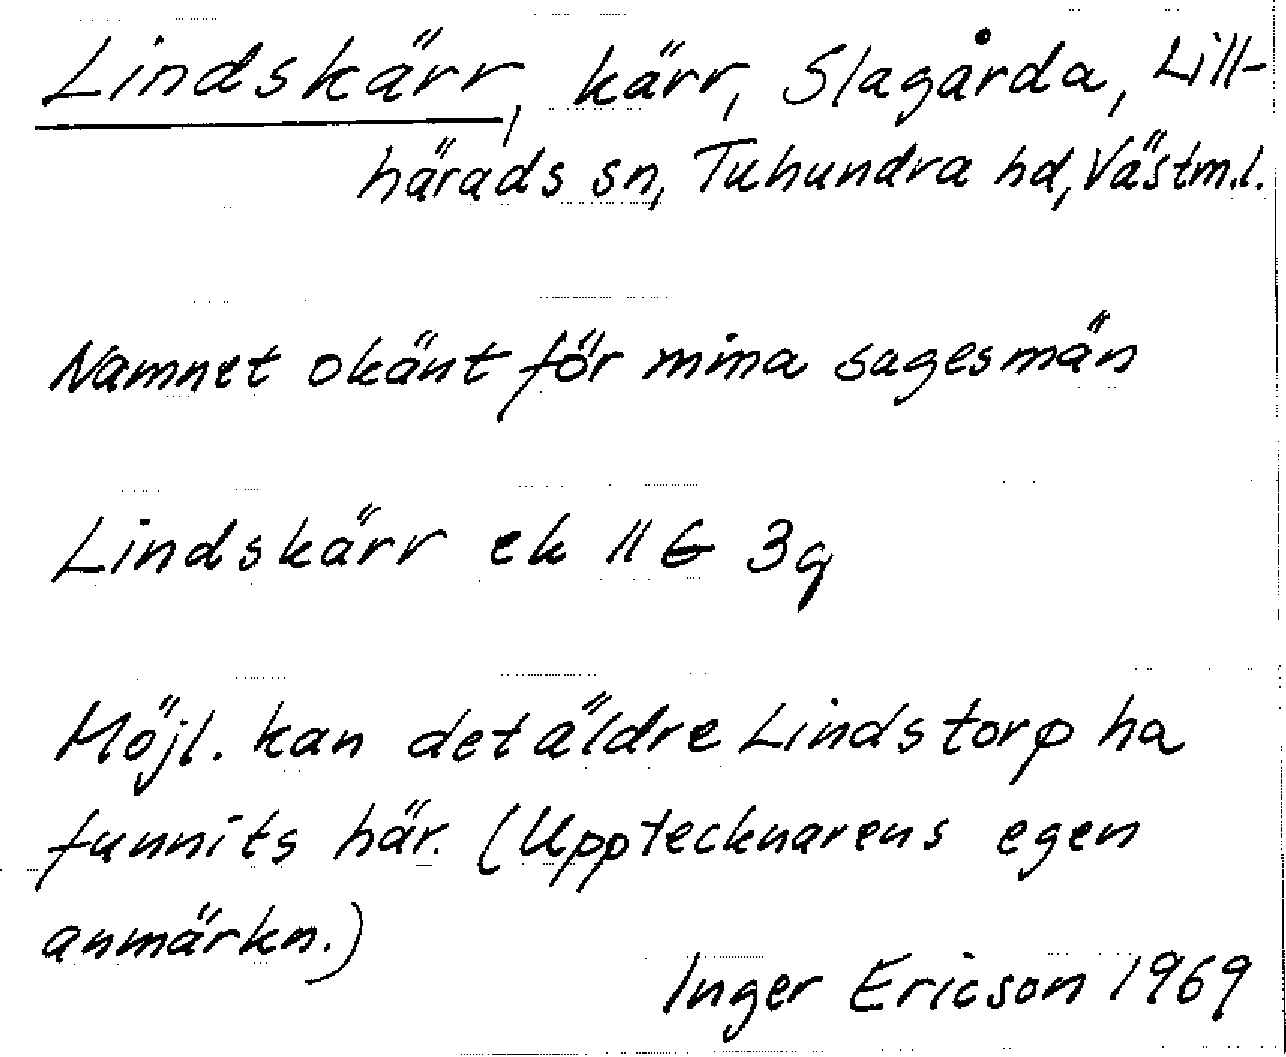 Lindskärr, kärr, Slagårda, Lill-
härads sn, Tuhundra hd, Västm.l.
Namnet okänt för mina sagesmän
Lindskärr ek 11G 3g
Möjl. kan det äldre Lindstorp ha
funnits här. (Upptecknarens egen
anmärkn.)
Inger Ericson 1969